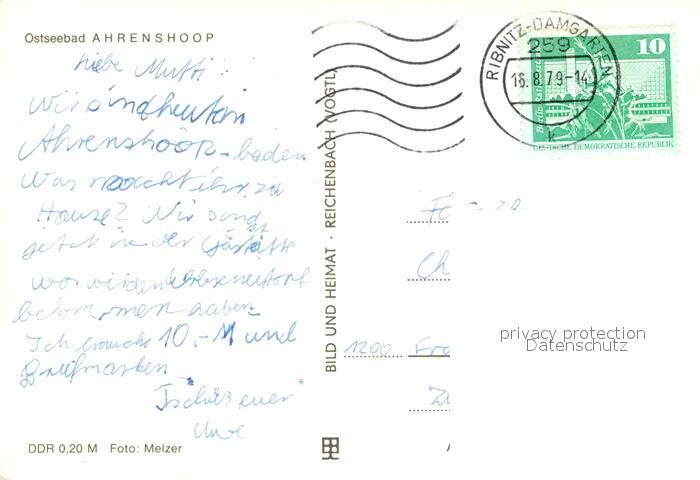 Ostseebad AHRENSHOOP
Liebe Mutti!
Wir sind heute in
Ahrenshoop-baden
Was macht ihr zu
Hause? Wir sind
jetzt in der Gaststätte
wo wir den
bekommen haben
Ich brauche 10,-M und
Briefmarken
Tschüß euer
Uwe
DDR 0,20 M Foto: Melzer
BILD UND HEIMAT · REICHENBACH (VOGTL)
RIBNITZ-DAMGARTEN
259
16.8.79-14
k
10
DEUTSCHE DEMOKRATISCHE REPUBLIK
Ch
1200 Fra
privacy protection
Datenschutz